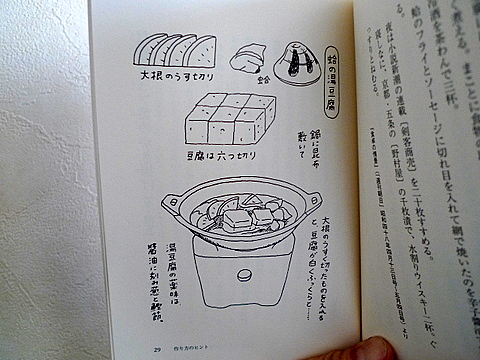 蛤の湯豆腐
大根のうす切り
蛤
豆腐は六つ切り
鍋に昆布
敷いて
大根のうす切ったものを入れる
と、豆腐が白くふっくらと……
湯豆腐の薬味は、
醤油に刻み葱と鰹節。
29 作り方のヒント
く煮える。まことに
冷酒を茶わんで三杯。
蛤のフライとソーセージに切れ目を入れて網で焼いたのを辛子
る。
夜は小説新潮の連載〔剣客商売〕を二十枚すすめる。
夜食なしに、京都・五条の〔野村屋〕の千枚漬で、水割りウイスキー二杯。ぐ
っすりとねむる。